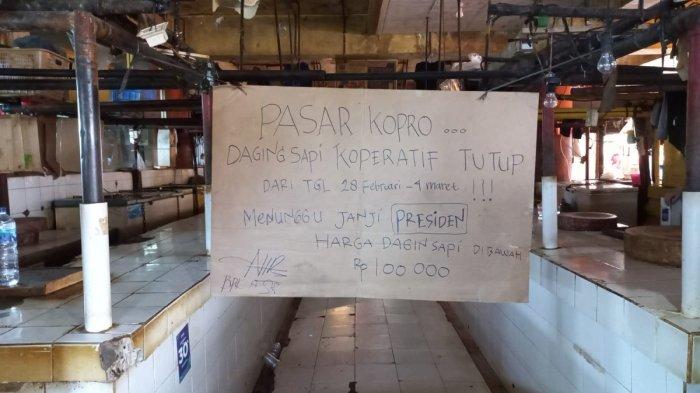 PASAR KOPRO ...
DAGING SAPI KOPERATIF TUTUP
DARI TGL 28 Februari - 4 maret !!!
MENUNGGU JANJI PRESIDEN
HARGA DAGIN SAPI DIBAWAH
Rp 100 000
30